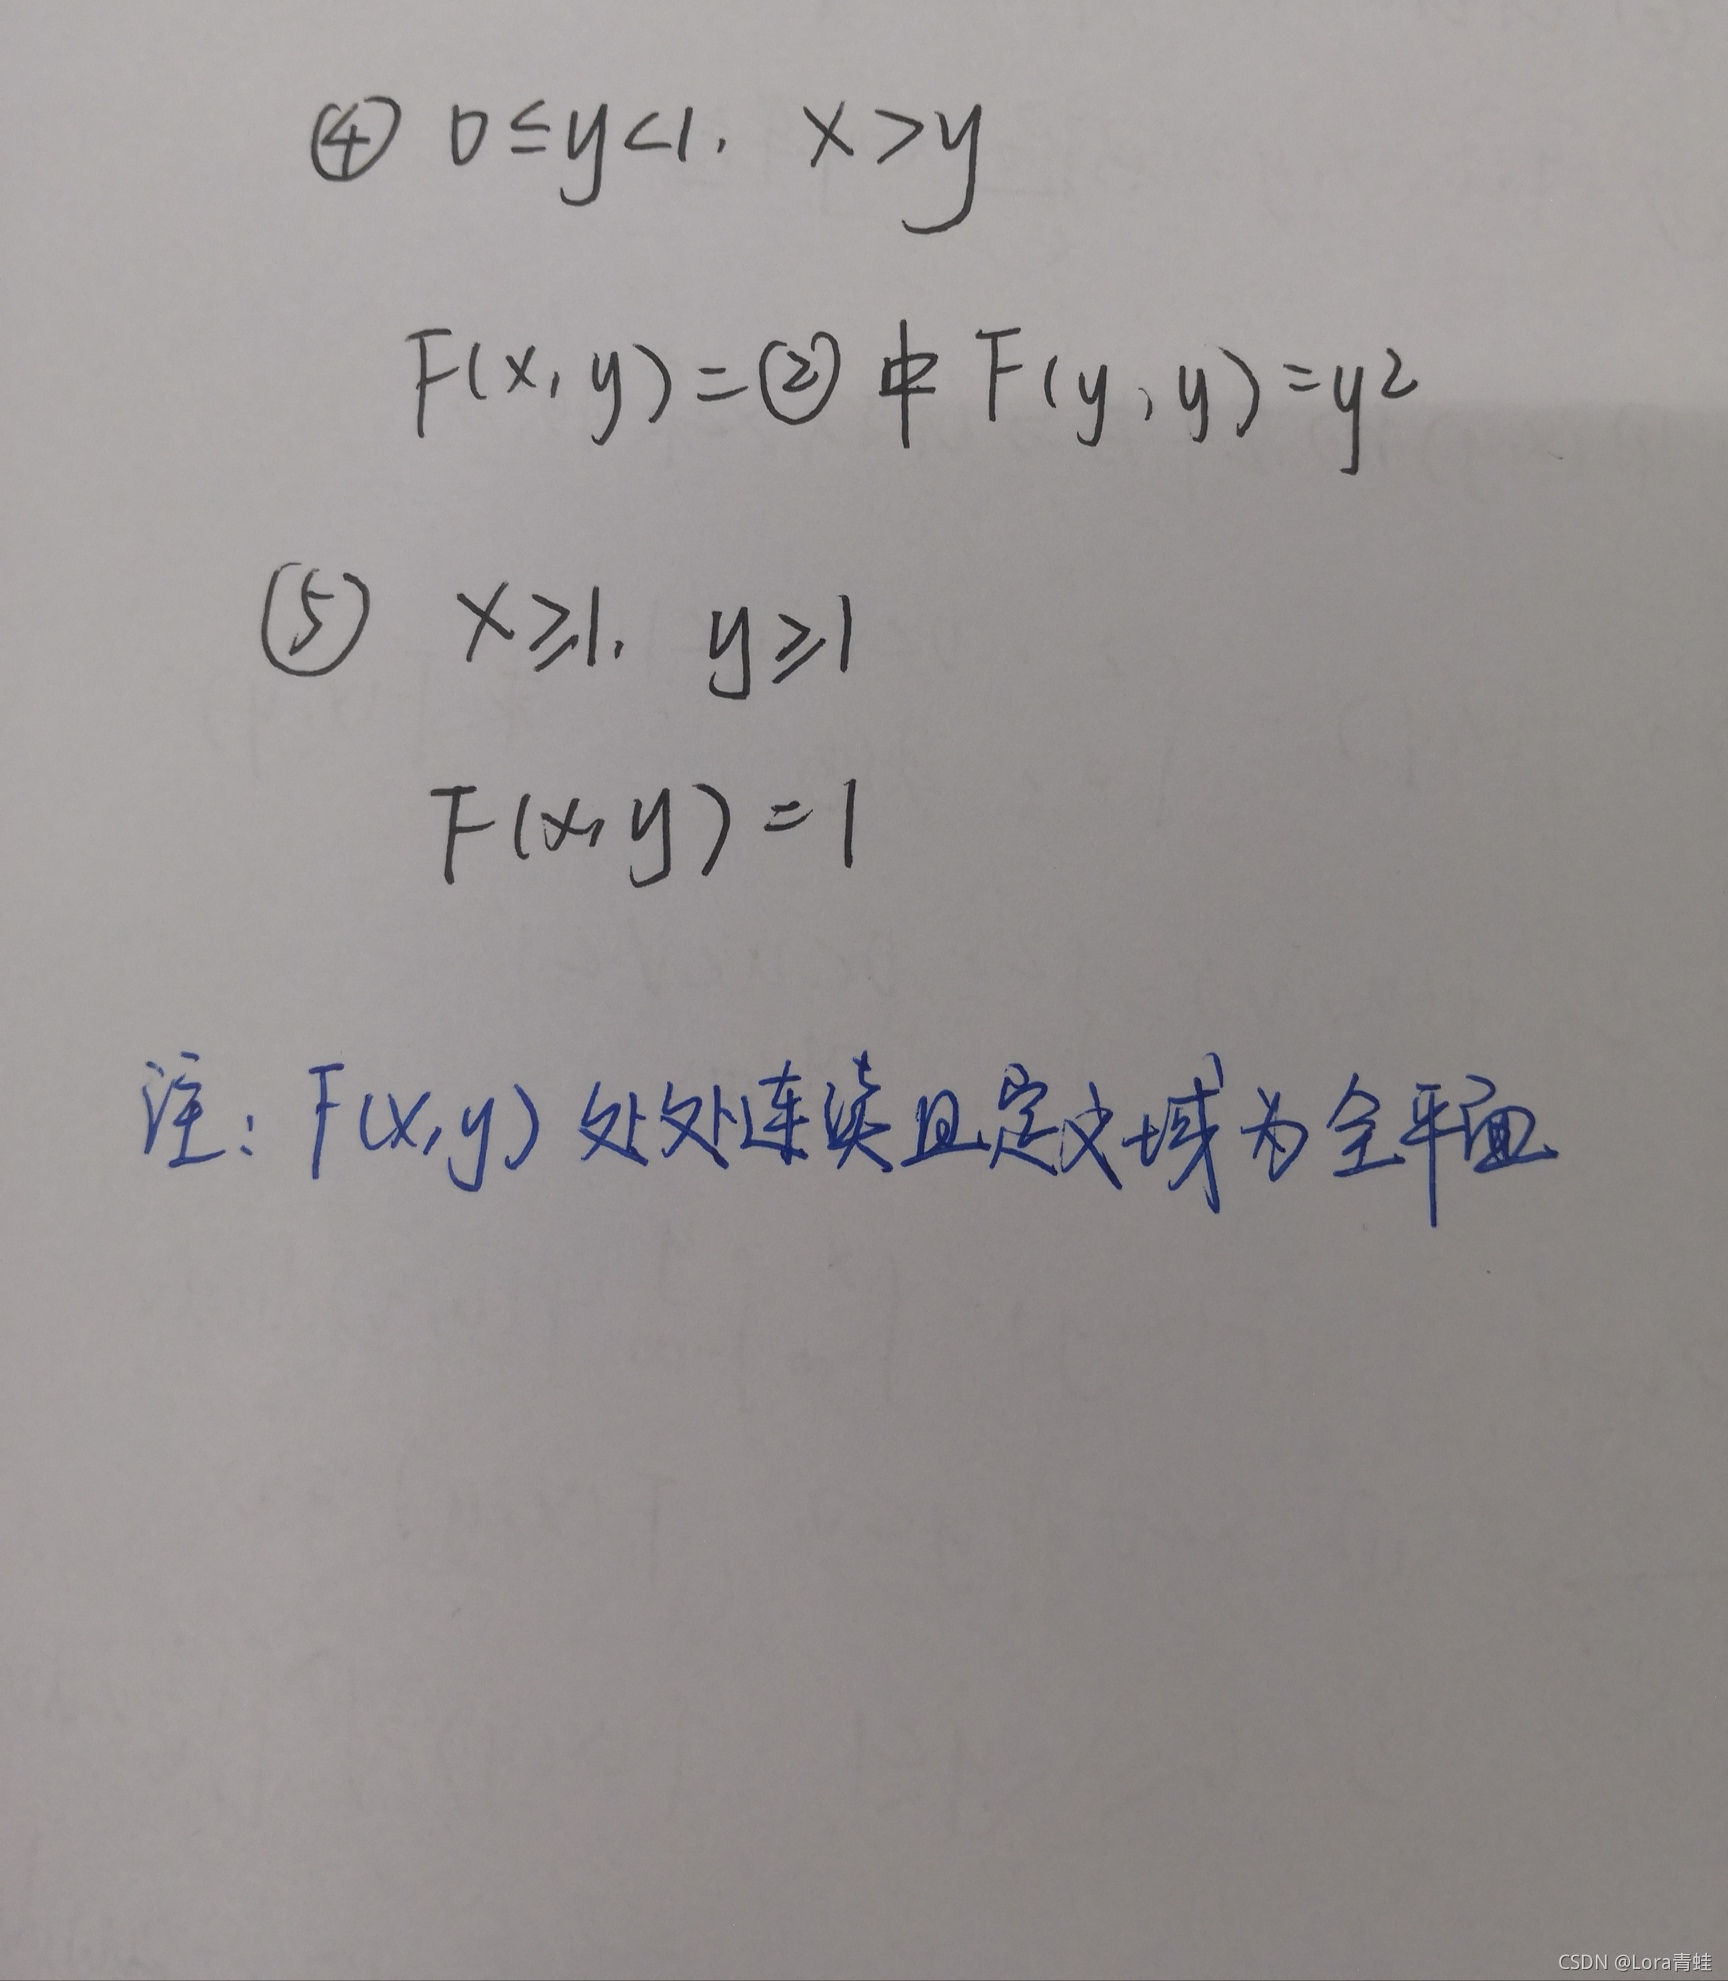 ④ 0≤y<1, x>y
F(x,y)=②中F(y,y)=y²
⑤ x≥1, y≥1
F(x,y)=1
注: F(x,y)处处连续且定义域为全平面
CSDN @Lora青蛙